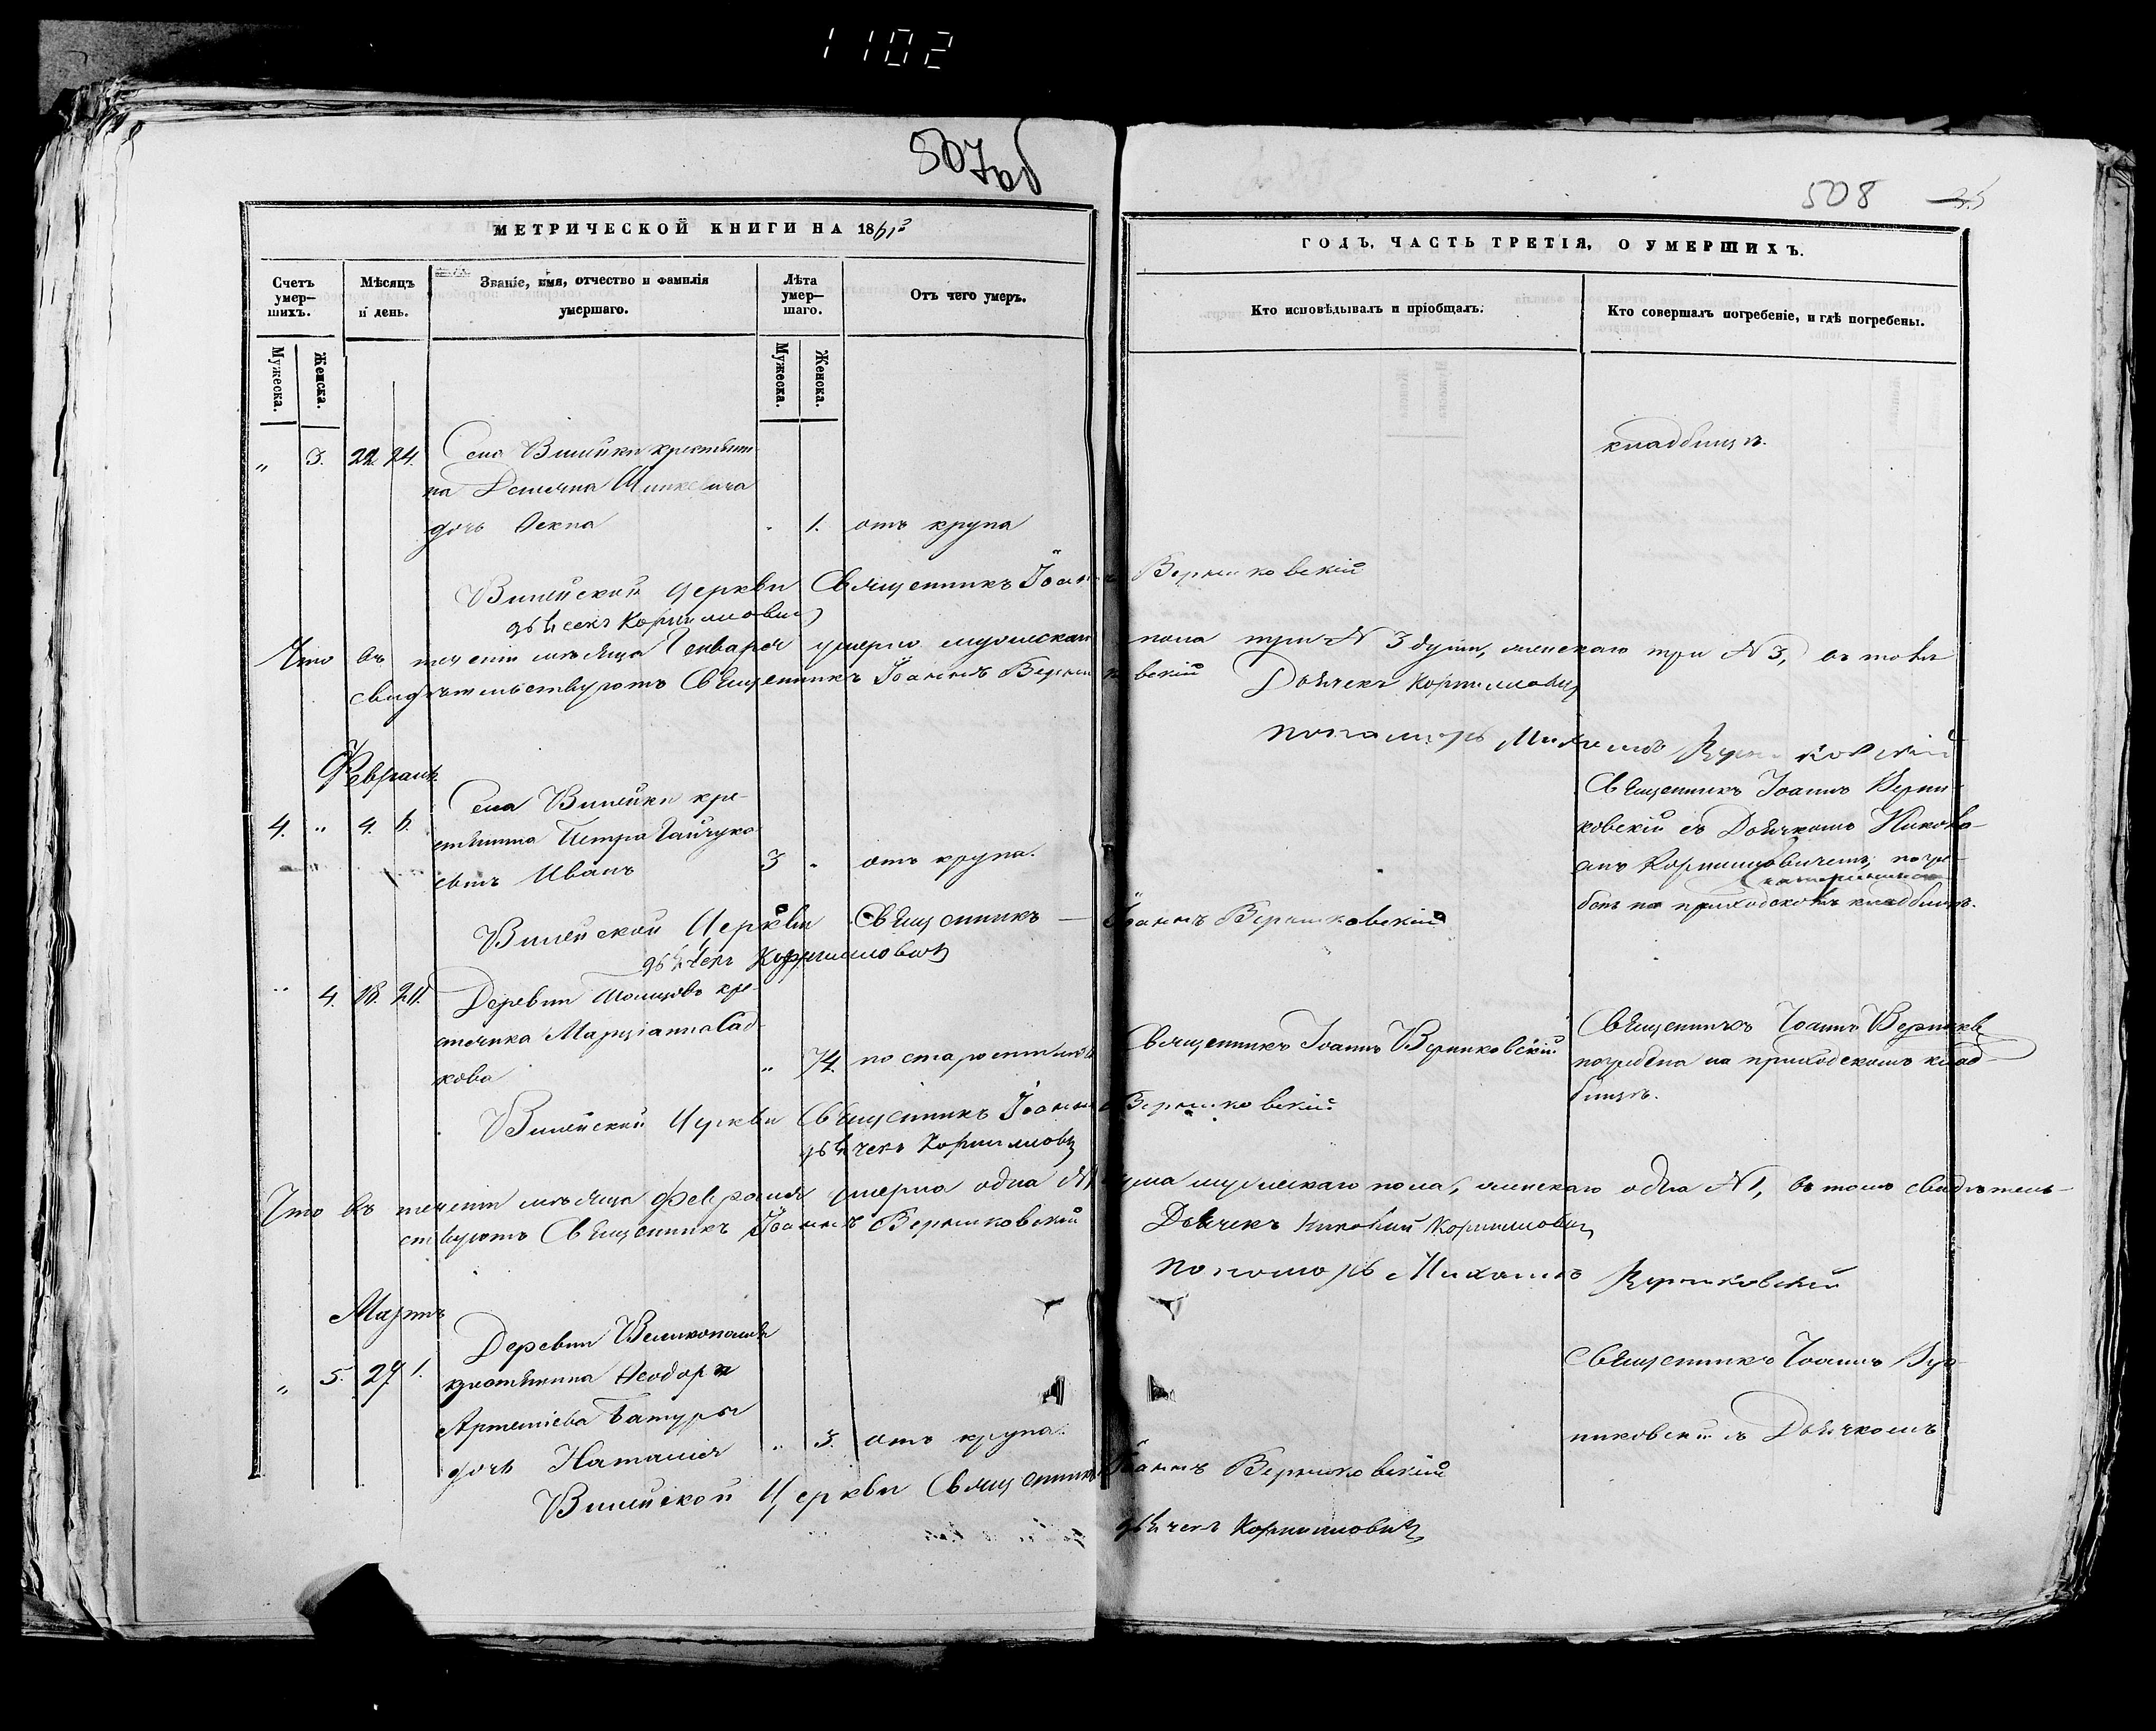 1102
507об
МЕТРИЧЕСКОЙ КНИГИ НА 18
Счетъ умер–шихъ.
Мѣсяцъ и день.
Званіе, имя, отчество и фамилія умершаго.
Лѣта умер–шаго.
Отъ чего умеръ.
Мужеска.
Женска.
Мужеска.
Женска.
„ 3. 22. 24. Села Вилейки крестьяни
на
дочь " 1. отъ крупа
Вилейской Церкви Священникъ Іоаннъ Верниковскій
дьячекъ Корниловичъ
Что въ теченіи мѣсяца Генваря умерло мужескаго пола три N 3 души, женскаго три N 3, въ томъ
свидѣтельствуютъ Священникъ Іоаннъ Верниковскій Дьячекъ Корниловичъ
пономарь Михаилъ
Февраль
4. „ 4. 6. Села Вилейки кре-
стьянина Петра
сынъ Иванъ 3 " отъ крупа.
Вилейской Церкви Священникъ Іоаннъ Верниковскій
дьячекъ Корниловичъ
„ 4. 18. 20. Деревни кре-
стьянка Марціанна Сад-
кова „ 74. по старости лѣтъ
Вилейской Церкви Священникъ Іоаннъ Верниковскій
дьячекъ Корниловичъ
Что въ теченіи мѣсяца Февраля умерла одна N 1 душа мужескаго пола, женскаго одна N 1, въ томъ свидѣтель-
ствуютъ Священникъ Іоаннъ Верниковскій Дьячекъ Корниловичъ
пономарь Михаилъ Верниковскій
Мартъ
„ 5. 27. 1. Деревни
крестьянина Ѳеодора
Артеміева Батуры
дочь Наталія „ 3. отъ крупа.
Вилейской Церкви Священникъ Іоаннъ Верниковскій
дьячекъ Корниловичъ
508
ГОДЪ, ЧАСТЬ ТРЕТІЯ, О УМЕРШИХЪ.
Кто исповѣдывалъ и пріобщалъ.
Кто совершалъ погребеніе, и гдѣ погребены.
кладбищѣ.
Священникъ Іоаннъ Верни-
ковскій съ Дьячкомъ
Корниловичемъ, погре-
бенъ на приходскомъ кладбищѣ.
Священникъ Іоаннъ Верниковскій
Священникъ Іоаннъ
погребена на приходскомъ клад-
бищѣ.
Священникъ Іоаннъ Вер-
никовскій съ Дьячкомъ